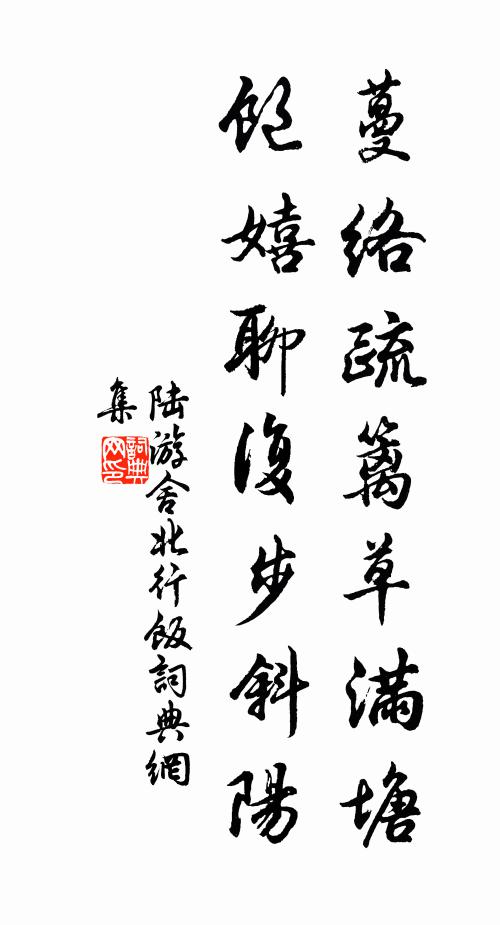 蔓絡疏籬草滿塘
飽嬉聊復步斜陽
陸游舍北行飯詞典網
集
詞典
网印